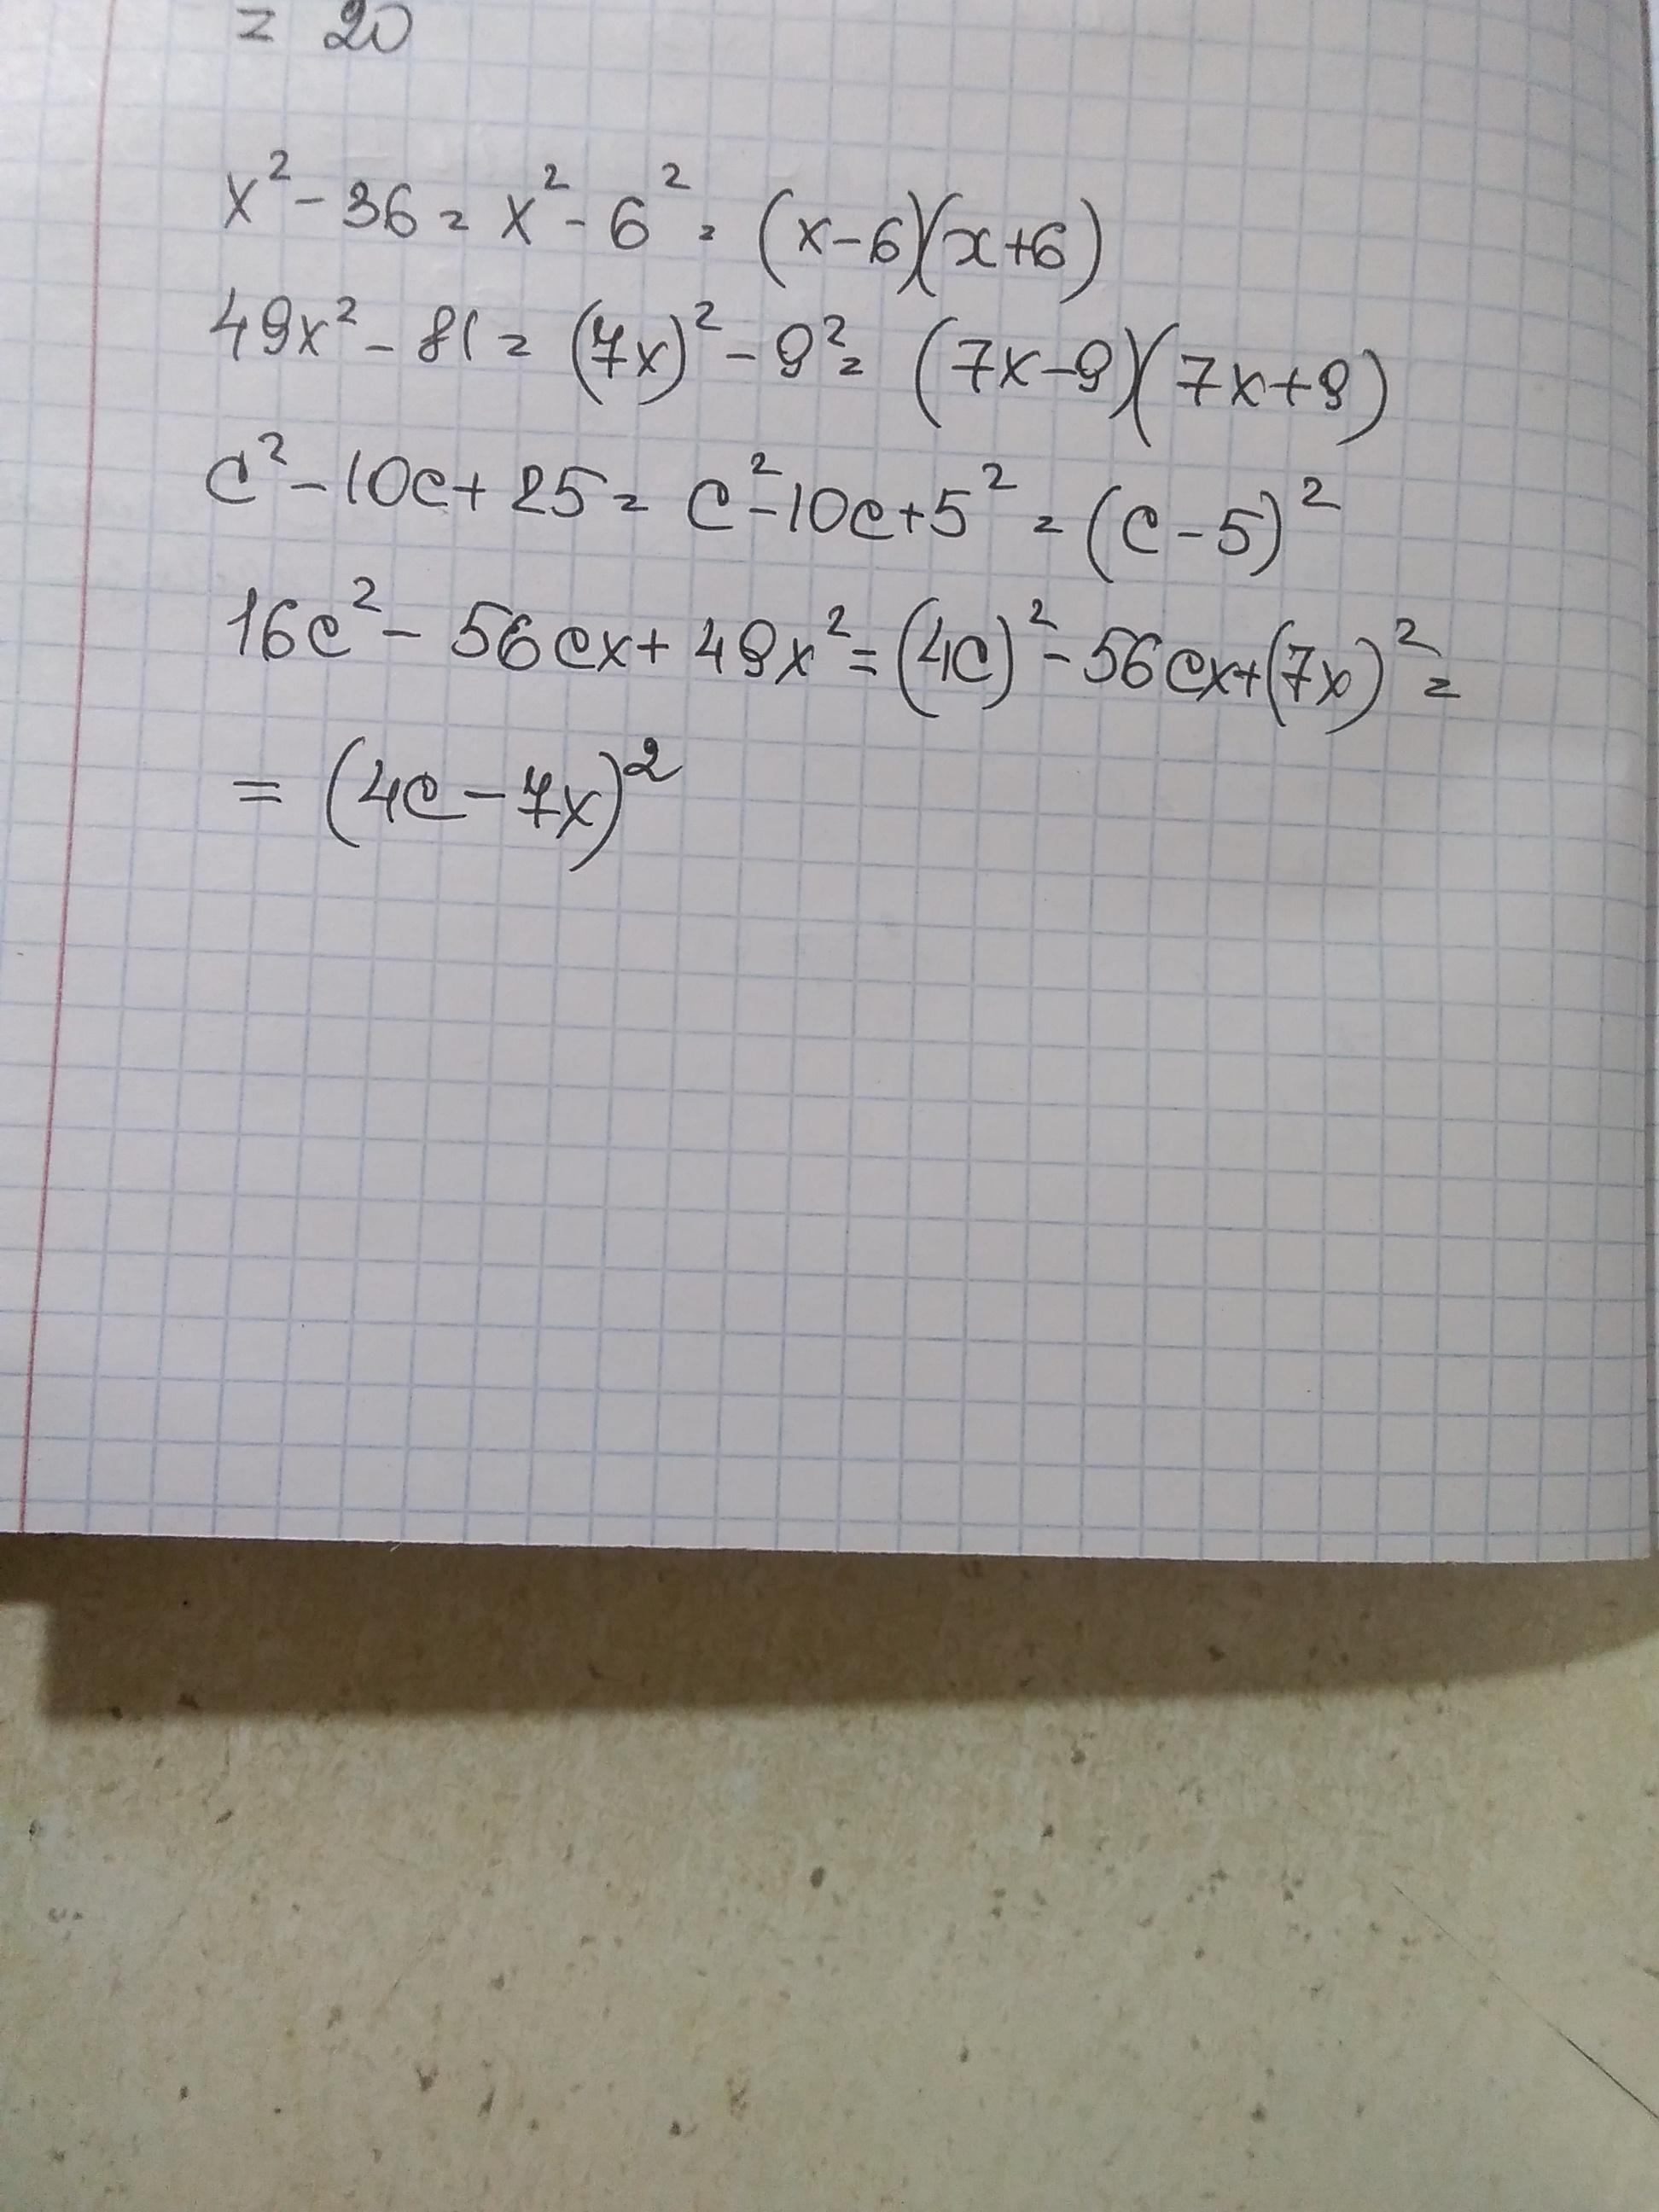 = 20
x² - 36 = x² - 6² = (x-6)(x+6)
49x² - 81 = (7x)² - 9² = (7x-9)(7x+9)
c² - 10c + 25 = c² - 10c + 5² = (c-5)²
16c² - 56cx + 49x² = (4c)² - 56cx + (7x)² =
= (4c - 7x)²